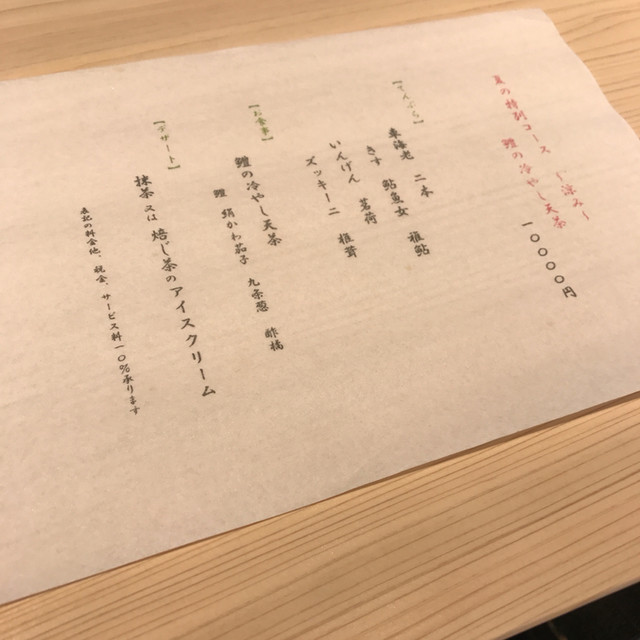 夏の特別コース ～涼み～
鱧の冷やし天茶
一〇〇〇〇円
【てんぷら】
車海老 二本
きす 鮎魚女 稚鮎
いんげん 茗荷
ズッキーニ 椎茸
【お食事】
鱧の冷やし天茶
鱧 絹かわ茄子 九条葱 酢橘
【デザート】
抹茶又は焙じ茶のアイスクリーム
表記の料金他、税金、サービス料一〇%承ります